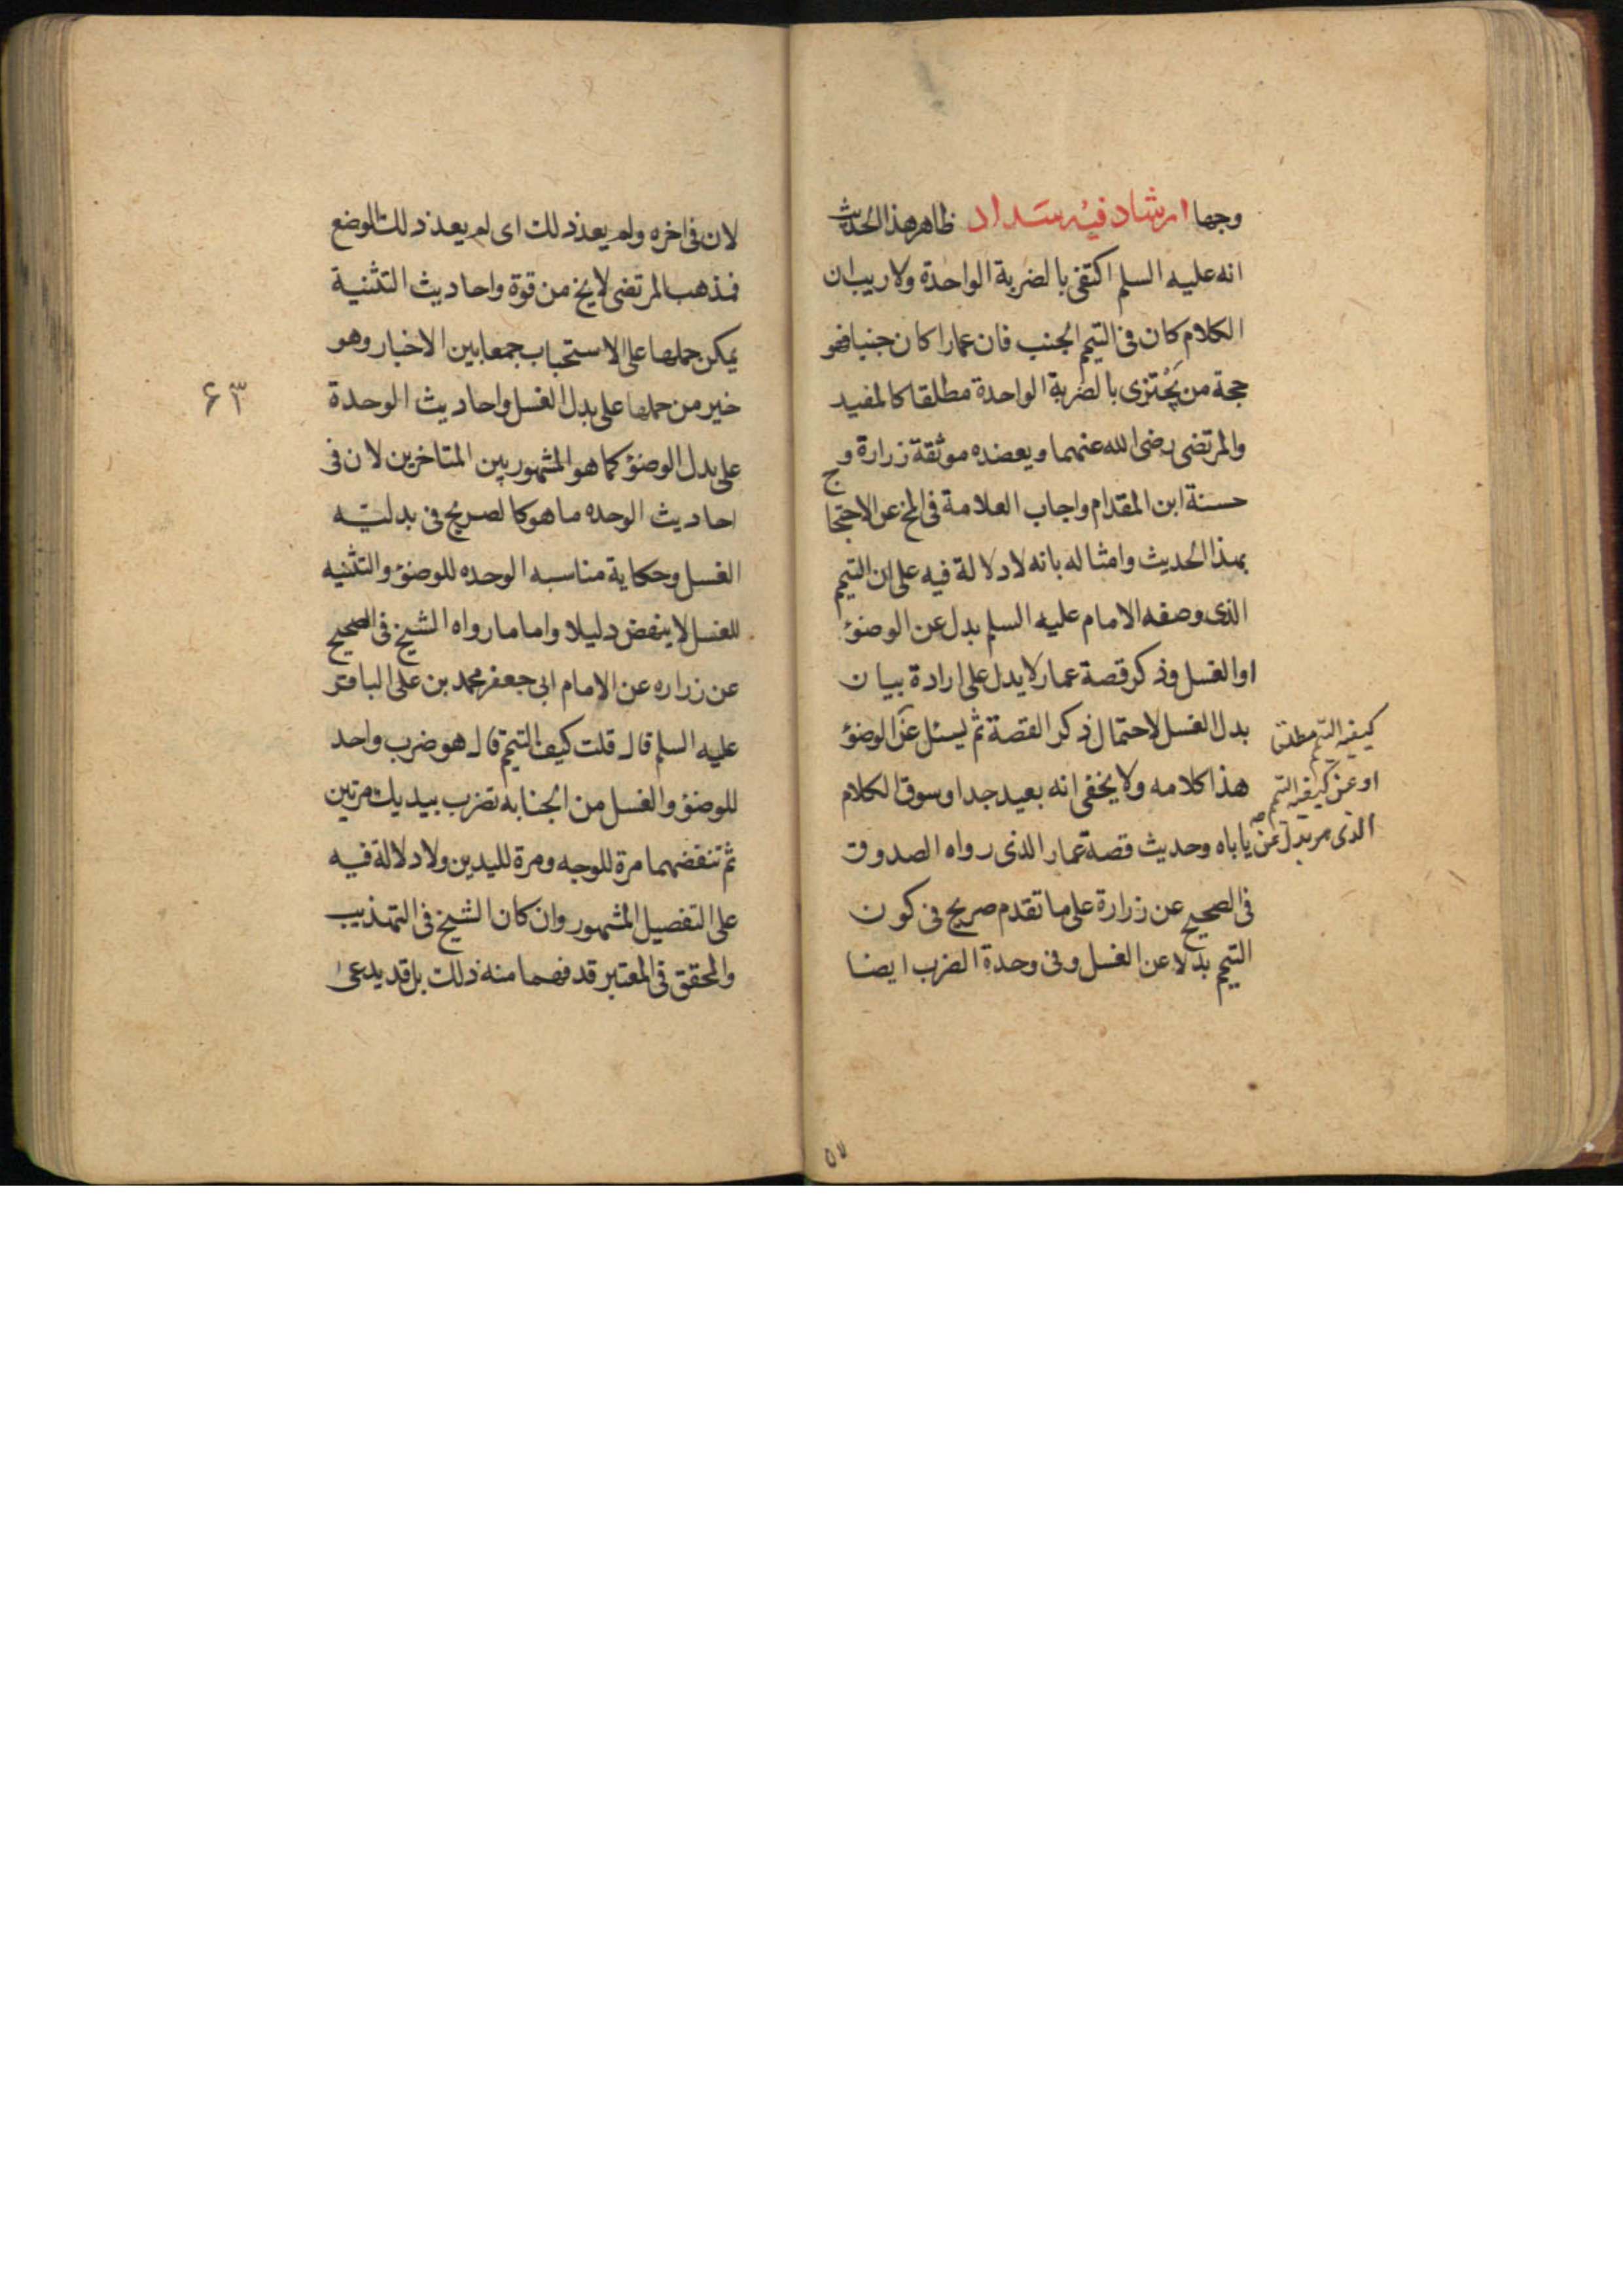 وجها ارشاد فيه سداد ظاهر هذا الحديث
انه عليه السلم اكتفى بالضربة الواحدة ولا ريب ان
الكلام كان فى التيمم الجنب فان عمارا كان جنبا فهو
حجة من يَجْتزى بالضربة الواحدة مطلقا كالمفيد
والمرتضى رضى الله عنهما ويعضده موثقة زرارة و
حسنة ابن المقدام واجاب العلامة فى المخ عن الاحتجاج
بهذا الحديث وامثاله بانه لا دلالة فيه على ان التيمم
الذى وصفه الامام عليه السلم بدل عن الوضوء
او الغسل وذكر قصة عمار لا يدل على ارادة بيان
بدل الغسل لاحتمال ذكر القصة ثم يسئل عن الوضوء
كيفية التيمم مطلقا
هذا كلامه ولا يخفى انه بعيد جدا وسوق الكلام
او عن كيفية التيمم
ياباه وحديث قصة عمار الذى رواه الصدوق
الذى هو بدل عن
فى الصحيح عن زرارة على ما تقدم صريح فى كون
التيمم بدلا عن الغسل وفى وحدة الضرب ايضا
٥٧
لان فى اخره ولم يعد ذلك اى لم يعد ذلك الوضع
فمذهب المرتضى لا يخ من قوة واحاديث التثنية
يمكن حملها على الاستحباب جمعا بين الاخبار وهو
خير من حملها على بدل الغسل واحاديث الوحدة
٦٣
على بدل الوضوء كما هو المشهور بين المتاخرين لان فى
احاديث الوحده ما هو كالصريح فى بدليّه
الغسل وحكاية مناسبه الوحده للوضوء والتثنيه
للغسل لا ينهض دليلا واما ما رواه الشيخ فى الصحيح
عن زراره عن الامام ابى جعفر محمد بن على الباقر
عليه السلم قال قلت كيف التيمم قال هو ضرب واحد
للوضوء والغسل من الجنابه تضرب بيديك مرتين
ثم تنفضهما مرة للوجه ومرة لليدين ولا دلالة فيه
على التفصيل المشهور وان كان الشيخ فى التهذيب
والمحقق فى المعتبر قد فهما منه ذلك بل قد يدعى